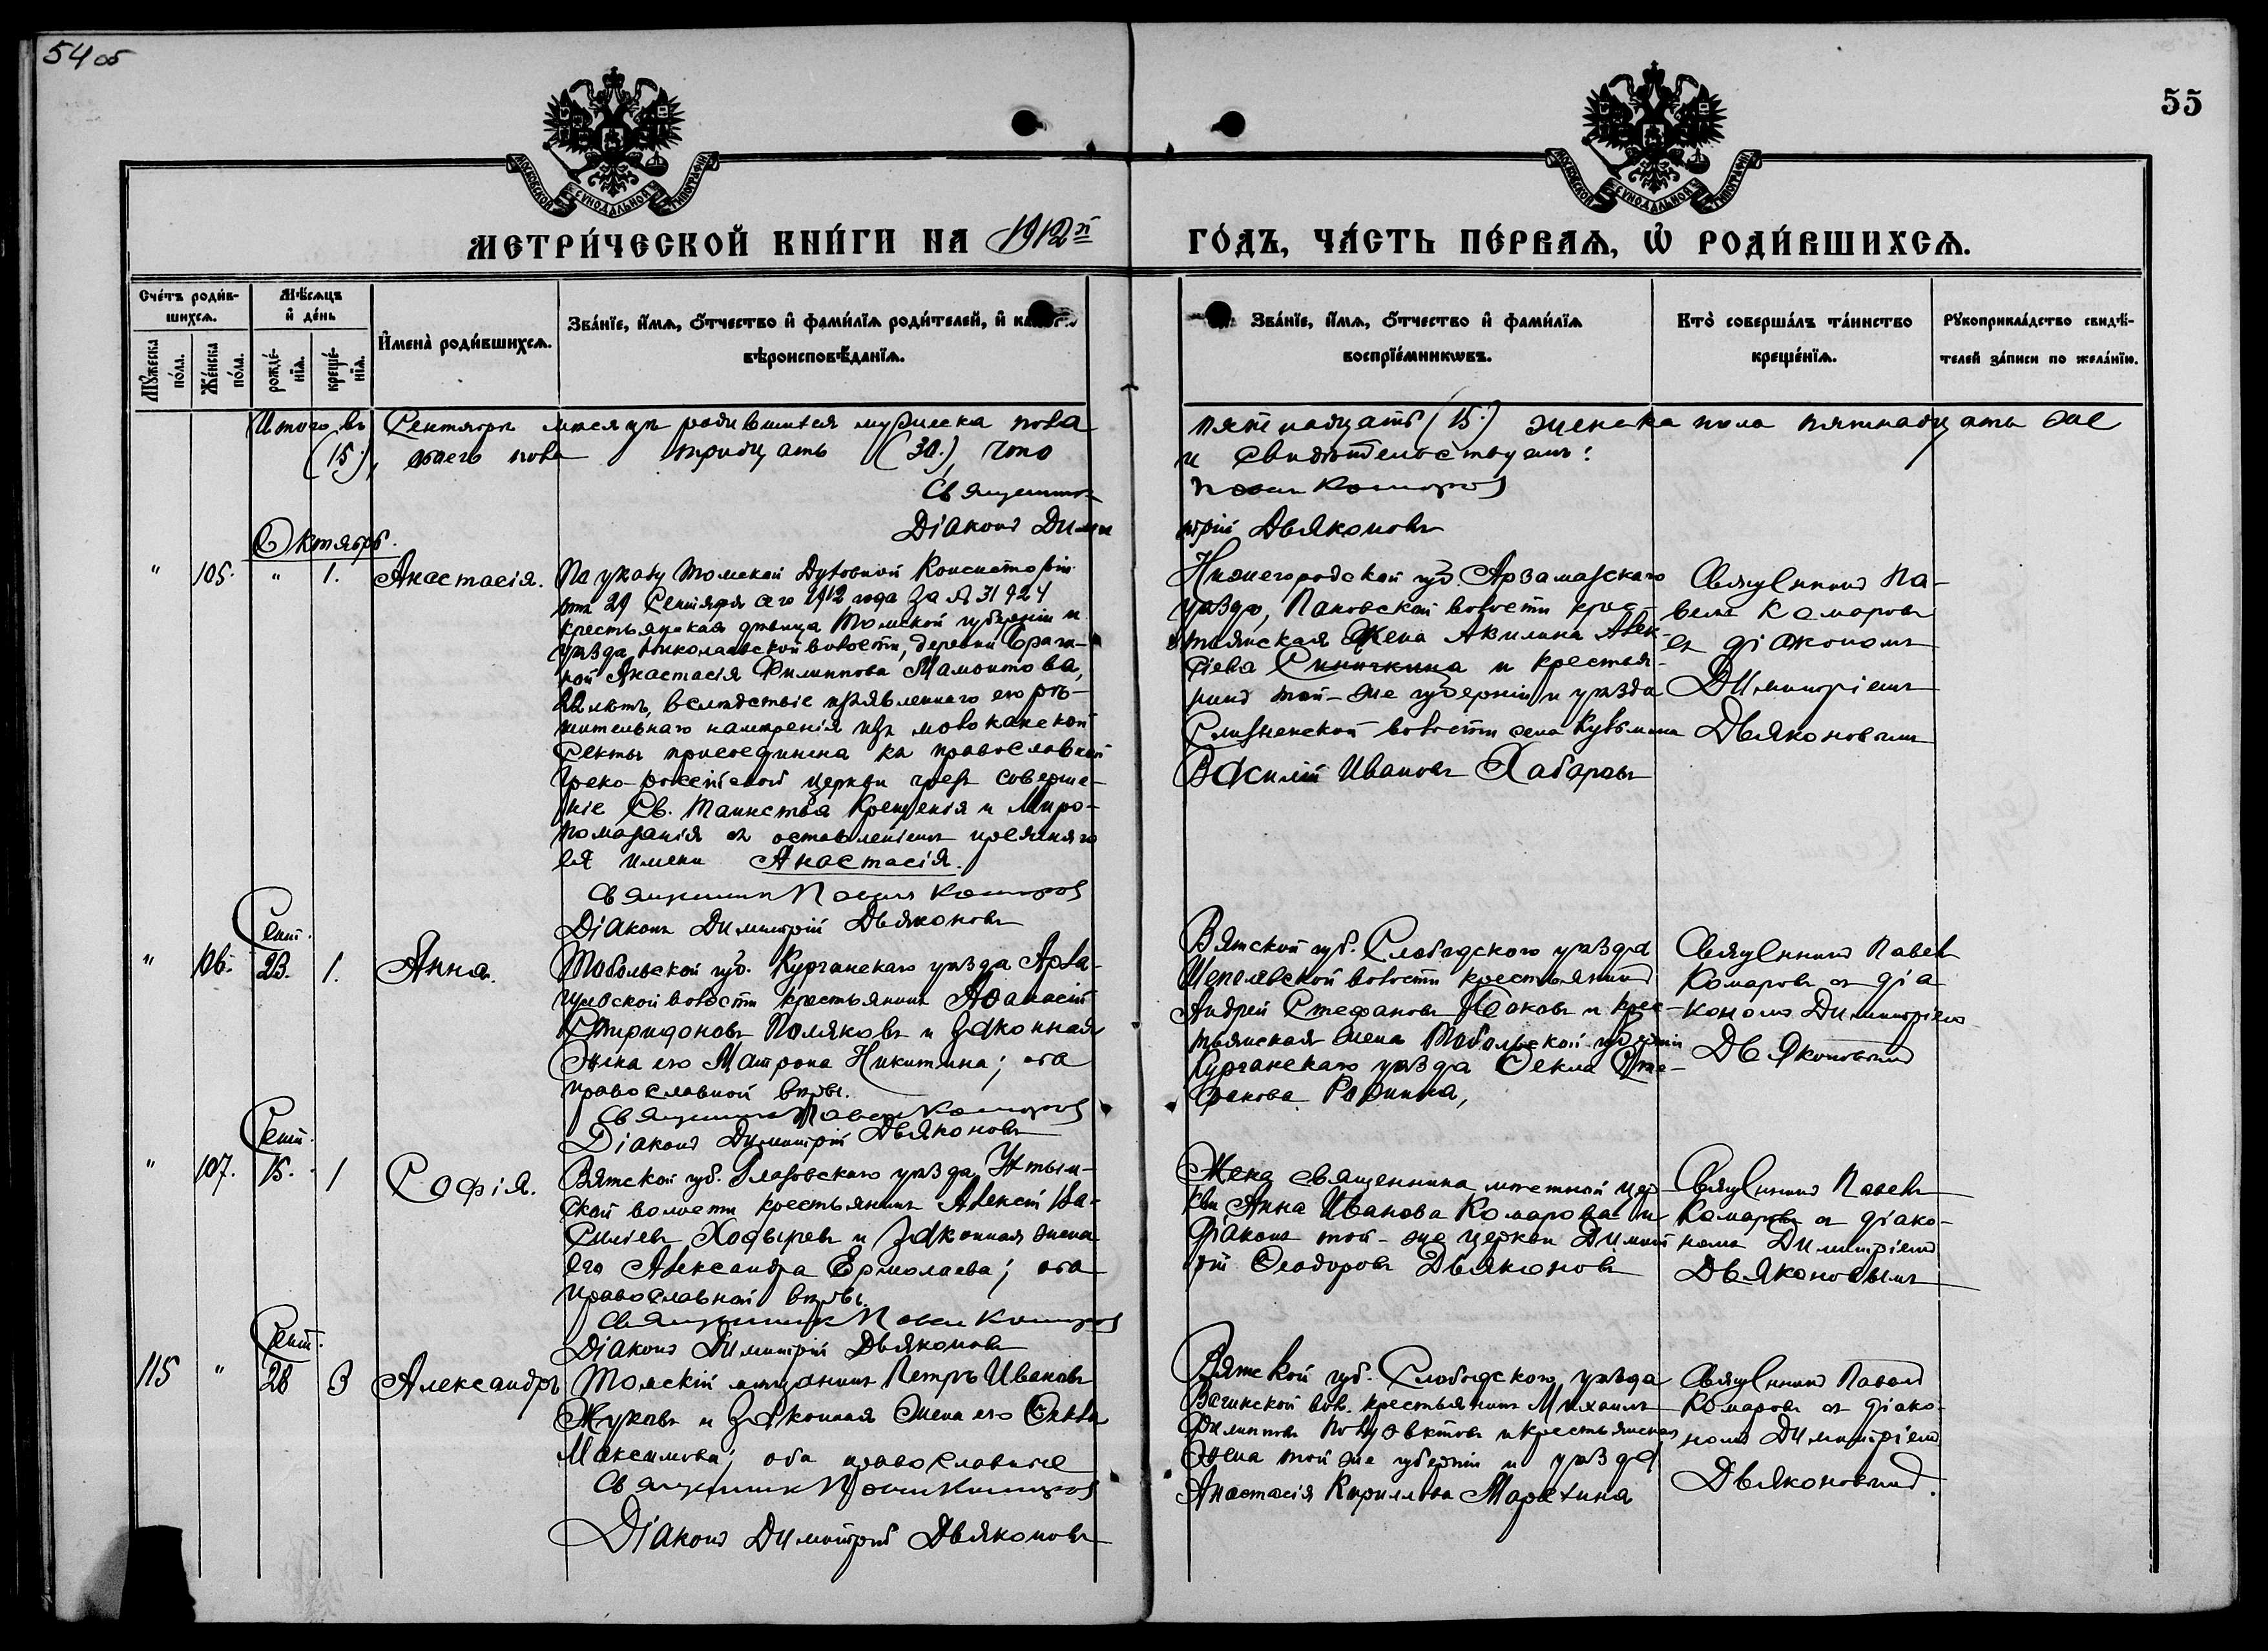 54 об
55
МОСКОВСКОЙ СѴНОДАЛЬНОЙ ТИПОГРАФІИ
МОСКОВСКОЙ СѴНОДАЛЬНОЙ ТИПОГРАФІИ
МЕТРИ́ЧЕСКОЙ КНИ́ГИ НА 1912й ГО́ДЪ, ЧА́СТЬ ПЕ́РВАѦ, Ѡ҆ РОДИ́ВШИХСѦ.
Сче́тъ роди́в-
шихсѧ.
Мꙋ́жеска
по́ла.
Же́нска
по́ла.
Мѣ́сѧцъ
и҆ де́нь
рожде́-
нїѧ.
креще́-
нїѧ.
И҆мена̀ роди́вшихсѧ.
Зва́нїе, и҆́мѧ, ѻ҆́тчество и҆ фами́лїѧ роди́телей, и҆
вѣроисповѣ́данїѧ.
Зва́нїе, и҆́мѧ, ѻ҆́тчество и҆ фами́лїѧ
воспрїе́мникѡвъ.
Кто̀ соверша́лъ та́инство
креще́нїѧ.
Рꙋкоприкла́дство свидѣ́-
телей за́писи по жела́нїю.
Итого въ Сентябрѣ мѣсяцѣ родившихся мужеска пола
(15), обоего пола тридцать (30), что
Священникъ
Діаконъ Дими
пятнадцать (15) женска пола пятнадцать же
и свидѣтельствуемъ:
Павелъ Комаровъ
трій Дьяконовъ
Октябрь.
" 105. " 1. Анастасія.
По указу Томской Духовной Консисторіи
отъ 29 Сентября сего 1912 года за № 31924
крестьянская дѣвица Томской губерніи и
уѣзда, Николаевской волости, деревни
Анастасія Филиппова Мамонтова,
22 лѣтъ, вслѣдствіе изъявленнаго ею рѣ-
шительнаго намѣренія изъ молоканской
секты присоединена къ православной
Греко-россійской церкви чрезъ соверше-
ніе Св. Таинства Крещенія и Миро-
помазанія съ оставленіемъ прежняго
ея имени Анастасія.
Священникъ Павелъ Комаровъ
Діаконъ Димитрій Дьяконовъ
Нижегородской губ. Арзамасскаго
уѣзда, Пановской волости крес-
тьянская жена Акилина Алек-
сіева Синичкина и крестья-
нинъ той-же губерніи и уѣзда
волости села
Василій Ивановъ Хабаровъ
Священникъ Па-
велъ Комаровъ
съ діакономъ
Димитріемъ
Дьяконовымъ
Сент.
" 106. 23. 1. Анна.
Тобольской губ. Курганскаго уѣзда
волости крестьянинъ Аѳанасій
Спиридоновъ Поляковъ и законная
жена его Матрона Никитина; оба
православной вѣры.
Священникъ Павелъ Комаровъ
Діаконъ Димитрій Дьяконовъ
Вятской губ. Слободского уѣзда
Шепелевской волости крестьянинъ
Андрей Стефановъ и крес-
тьянская жена Тобольской губерніи
Курганскаго уѣзда Ѳекла Сте-
фанова
Священникъ Павелъ
Комаровъ съ діа
кономъ Димитріемъ
Дьяконовымъ
Сент.
" 107. 15. 1 Софія.
Вятской губ. Глазовскаго уѣзда,
ской волости крестьянинъ Алексій Ва-
силіевъ Ходыревъ и законная жена
его Александра Ермолаева; оба
православной вѣры.
Священникъ Павелъ Комаровъ
Діаконъ Димитрій Дьяконовъ
Жена священника мѣстной цер-
кви Анна Иванова Комарова и
діаконъ той-же церкви Димит
рій Ѳеодоровъ Дьяконовъ
Священникъ Павелъ
Комаровъ съ діако-
номъ Димитріемъ
Дьяконовымъ
Сент.
115 " 28 3 Александръ
Томскій мѣщанинъ Петръ Ивановъ
Жуковъ и законная жена его Ѳекла
Максимова; оба православные
Священникъ Павелъ Комаровъ
Діаконъ Димитрій Дьяконовъ
Вятской губ. Слободского уѣзда
вол. крестьянинъ Михаилъ
Филипповъ и крестьянская
жена той же губерніи и уѣзда
Анастасія Кириллова
Священникъ Павелъ
Комаровъ съ діако-
номъ Димитріемъ
Дьяконовымъ.